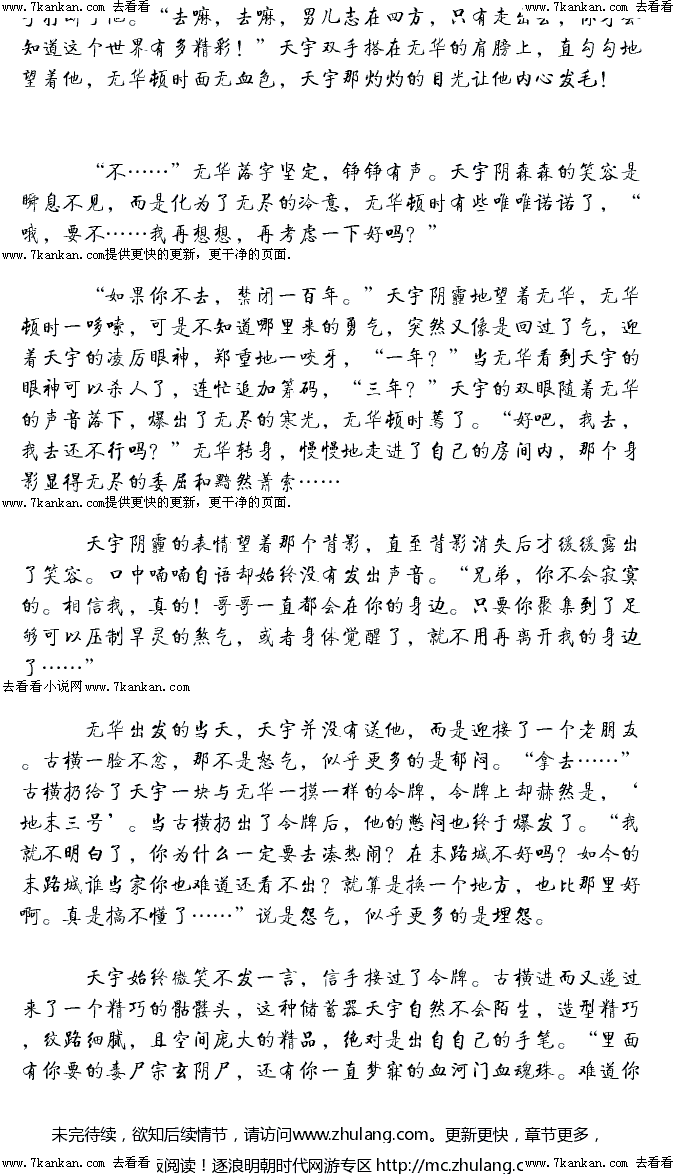 www.7kankan.com 去看看 去看看 www.7kankan.com
“去嘛，去嘛，男儿志在四方，只有走出去，你才会
知道这个世界有多精彩！”天宇双手搭在无华的肩膀上，直勾勾地
望着他，无华顿时面无血色，天宇那灼灼的目光让他内心发毛！
“不……”无华落字坚定，铮铮有声。天宇阴森森的笑容是
瞬息不见，而是化为了无尽的冷意，无华顿时有些唯唯诺诺了，“
哦，要不……我再想想，再考虑一下好吗？”
www.7kankan.com提供更快的更新，更干净的页面.
“如果你不去，禁闭一百年。”天宇阴霾地望着无华，无华
顿时一哆嗦，可是不知道哪里来的勇气，突然又像是回过了气，迎
着天宇的凌厉眼神，郑重地一咬牙，“一年？”当无华看到天宇的
眼神可以杀人了，连忙追加筹码，“三年？”天宇的双眼随着无华
的声音落下，爆出了无尽的寒光，无华顿时蔫了。“好吧，我去，
我去还不行吗？”无华转身，慢慢地走进了自己的房间内，那个身
影显得无尽的委屈和黯然萧索……
www.7kankan.com提供更快的更新，更干净的页面.
天宇阴霾的表情望着那个背影，直至背影消失后才缓缓露出
了笑容。口中喃喃自语却始终没有发出声音。“兄弟，你不会寂寞
的。相信我，真的！哥哥一直都会在你的身边。只要你聚集到了足
够可以压制旱灵的煞气，或者身体觉醒了，就不用再离开我的身边
了……”
去看看小说网www.7kankan.com
无华出发的当天，天宇并没有送他，而是迎接了一个老朋友
。古横一脸不忿，那不是怒气，似乎更多的是郁闷。“拿去……”
古横扔给了天宇一块与无华一摸一样的令牌，令牌上却赫然是，‘
地末三号’。当古横扔出了令牌后，他的憋闷也终于爆发了。“我
就不明白了，你为什么一定要去凑热闹？在末路城不好吗？如今的
末路城谁当家你也难道还看不出？就算是换一个地方，也比那里好
啊。真是搞不懂了……”说是怨气，似乎更多的是埋怨。
天宇始终微笑不发一言，信手接过了令牌。古横进而又递过
来了一个精巧的骷髅头，这种储蓄器天宇自然不会陌生，造型精巧
，纹路细腻，且空间庞大的精品，绝对是出自自己的手笔。“里面
有你要的毒尸宗玄阴尸，还有你一直梦寐的血河门血魂珠。难道你
未完待续，欲知后续情节，请访问www.zhulang.com。更新更快，章节更多，
www.7kankan.com 去看看 阅读！逐浪明朝时代网游专区 http://mc.zhulang.c 去看看 www.7kankan.com